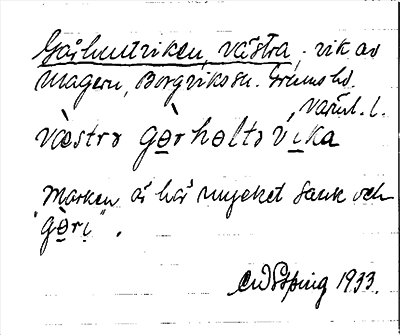 Gårhultviken, västra, vik av
Magern, Borgviks sn. Grums hd.
Värml. l.
væstrə gø̀rhøltə vika
Marken är här mycket sank och
"gø̀ri".
1933.